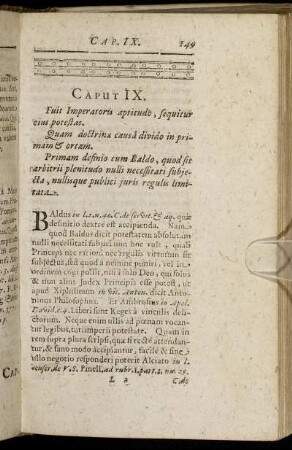 CAP. IX. 149
CAPUT IX.
Fuit Imperatoris aptitudo, sequitur
eius potestas.
Quam doctrinæ causâ divido in pri-
mam & ortam.
Primam definio cum Baldo, quod sit
arbitrii plenitudo nulli necessitati subje-
cta, nullisque publici juris regulis limi-
tata.
BAldus in C. de & aq. quæ
definitio dextre est accipienda. Nam
quod Baldus dicit potestatem absolutam
nulli necessitati subjectam hoc vult, quasi
Princeps nec rationi, neque virtutum sit
subjectus, sed quod à nemine puniri, vel in
ordinem cogi possit, nisi à solo Deo, qui solus
& non alius Judex Principis esse potest, ut
apud Xiphilinum in Anton. dicit Anto-
ninus Philosophus. Et Ambrosius in Apol.
David. c. 4. Liberi sunt Reges à vinculis deli-
ctorum. Neque enim ullis ad pœnam vocan-
tur legibus, tuti imperii potestate. Quam in
rem supra plura scripsi, quæ si recte attendan-
tur, & favo modo accipiantur, facilè & sine ul-
lo negotio responderi poterit Alciato in l.
de V. S. Pinell. ad rubr. 1. part. 1. nu. 25.
L 2